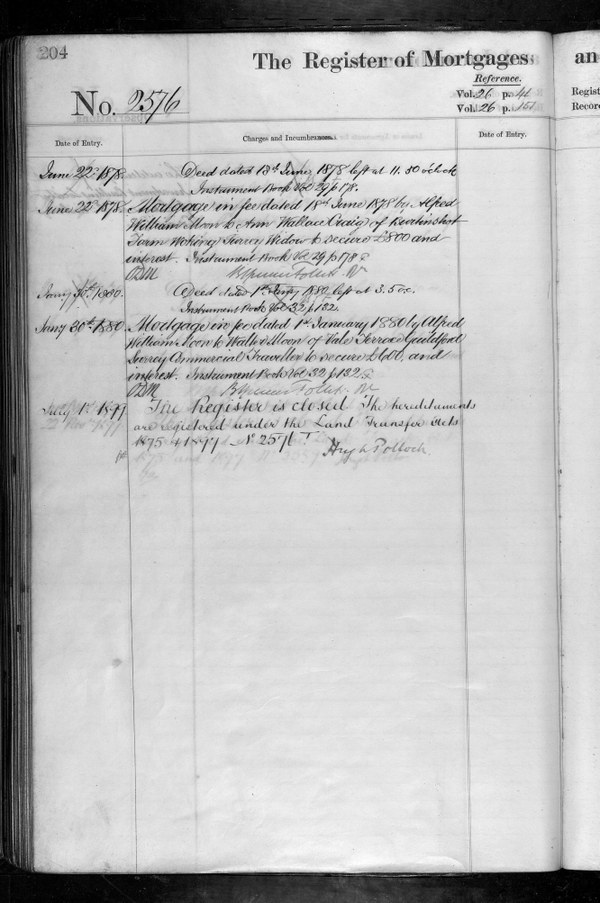 204
The Register of Mortgages
an
Reference.
No. 2576
Vol. 26 p. 41
Vol. 26 p. 151
Regist
Recor
Date of Entry.
Charges and Incumbrances.
Date of Entry.
June 22nd 1878. Deed dated 18th June 1878 left at 11.50 o'clock
Instrument Book Vol 29 p 178.
June 22nd 1878. Mortgage in fee dated 18th June 1878 by Alfred
William Moon to Ann Wallace Craig of
Farm Woking Surrey Widow to secure £800 and
interest. Instrument Book Vol 29 p 178
Jany 30th 1880. Deed dated 1st Jany 1880 left at 3.5 o.c.
Instrument Book Vol 32 p 132.
Jany 30th 1880. Mortgage in fee dated 1st January 1880 by Alfred
William Moon to Walter Moon of Vale Terrace Guildford
Surrey Commercial Traveller to secure £600, and
interest. Instrument Book Vol 32 p 132
July 1st 1899 The Register is closed The hereditaments
are registered under the Land Transfer Acts
1875 & 1897 No 2576
Hugh Pollock